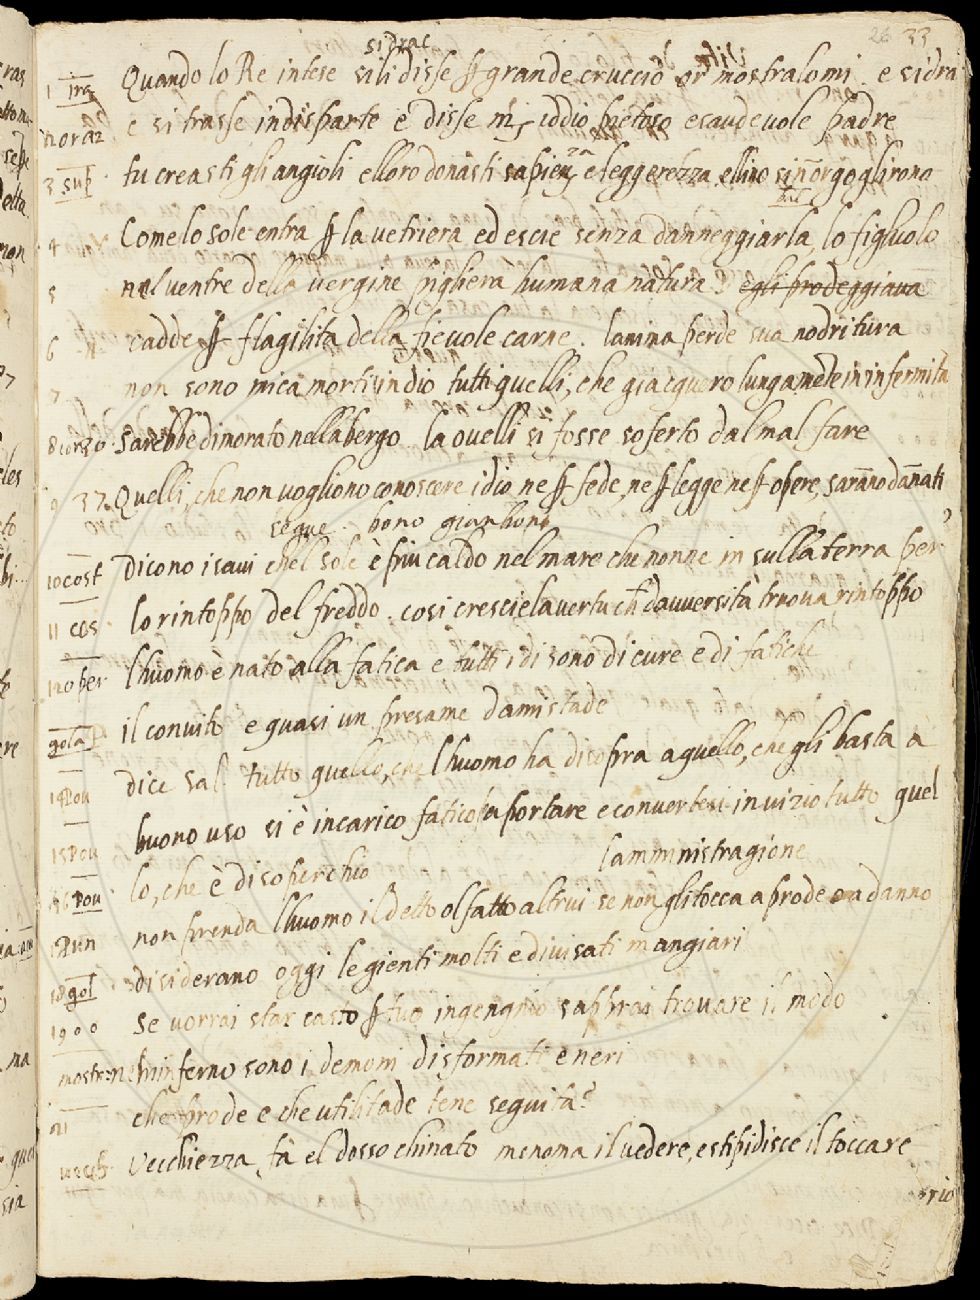 26 33
sidrac
1 ira Quando lo Re intese si li disse ꝑ grande cruccio or mostralomi e sidra
2 oraz e si trasse indisparte e disse iddio pietoso esaudevole padre
3 sup tu creasti gli angioli elloro donasti sapienza e leggerezza ellino sinnorgoglirono
4 Come lo sole entra ꝑ la vetriera ed escie senza danneggiarla lo figluolo
5 nel ventre della vergine pigliera humana natura egli prodeggiava
6 cadde ꝑ flagilita della fievole carne. lanima perde sua nodritura
7 non sono mica morti in dio tutti quelli, che giacquero lungamente in infermita
8 sarebbe dimorato nellabergo la ovelli si fosse soferto dal mal fare
9 37. Quelli, che non vogliono conoscere idio ne ꝑ fede, ne ꝑ legge ne ꝑ opere, saranno dannati
segue bono giamboni
10 cost Dicono i savi chel sole è piu caldo nel mare che nonne in sulla terra per
11 cos lo rintoppo del freddo. cosi crescie la vertu ch davversità truova rintoppo
12 oper lhuomo è nato alla fatica e tutti i di sono di cure e di fatiche
gola il convito e quasi un presame damistade
14 Pov dice Sal. tutto quello, che lhuomo ha di sopra a quello, che gli basta a
15 Pov buono uso si è incarico faticoso a portare e convertesi in vizio tutto quel
16 Pov lo, che è di soperchio lamministragione
17 Pun non prenda lhuomo il detto ol fatto altrui se non gli tocca a prode o a danno
18 gol disiderano oggi le gienti molti e divisati mangiari
19 se vorrai star casto ꝑ tuo ingengnio saprai trovare il modo
mostr ninferno sono i demoni disformati e neri
21 che prode e che utilitade tene seguita?
vecch Vecchiezza fà el dosso chinato menoma il vedere, e stipidisce il toccare